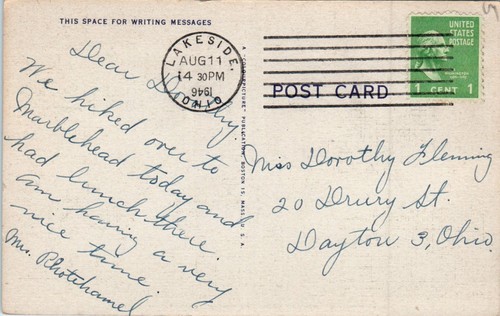 THIS SPACE FOR WRITING MESSAGES
Dear Dorothy,
We hiked over to
Marblehead today and
had lunch there.
am having a very
nice time.
Mrs.
LAKESIDE,
AUG 11
4 30PM
1946
OHIO
A "COLOURPICTURE" PUBLICATION BOSTON 15, MASS., U.S.A.
UNITED
STATES
POSTAGE
1 CENT 1
POST CARD
Miss Dorothy Fleming
20 Drury St.
Dayton 3, Ohio.